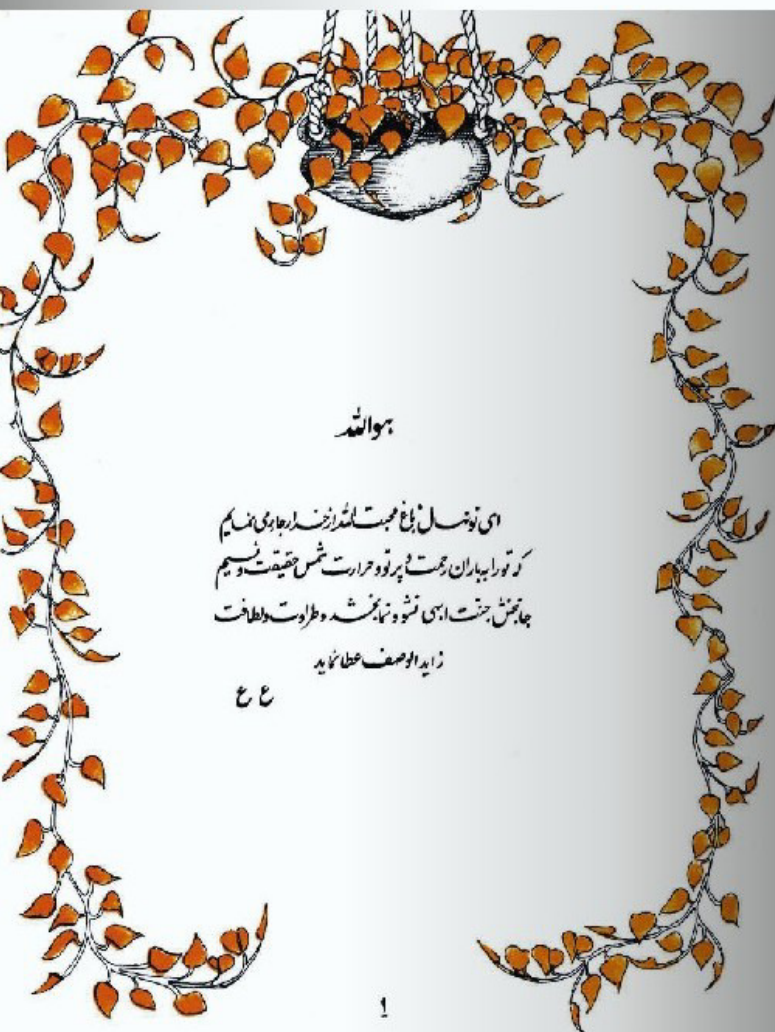 هواللّه
ای نونهال باغ محبت اللّه از خدا رجا می نمایم
که تو را به باران رحمت و پرتو و حرارت شمس حقیقت و نسیم
جانبخش جنت ابهی نشو و نما بخشد و طراوت و لطافت
زاید الوصف عطا نماید
ع ع
۹